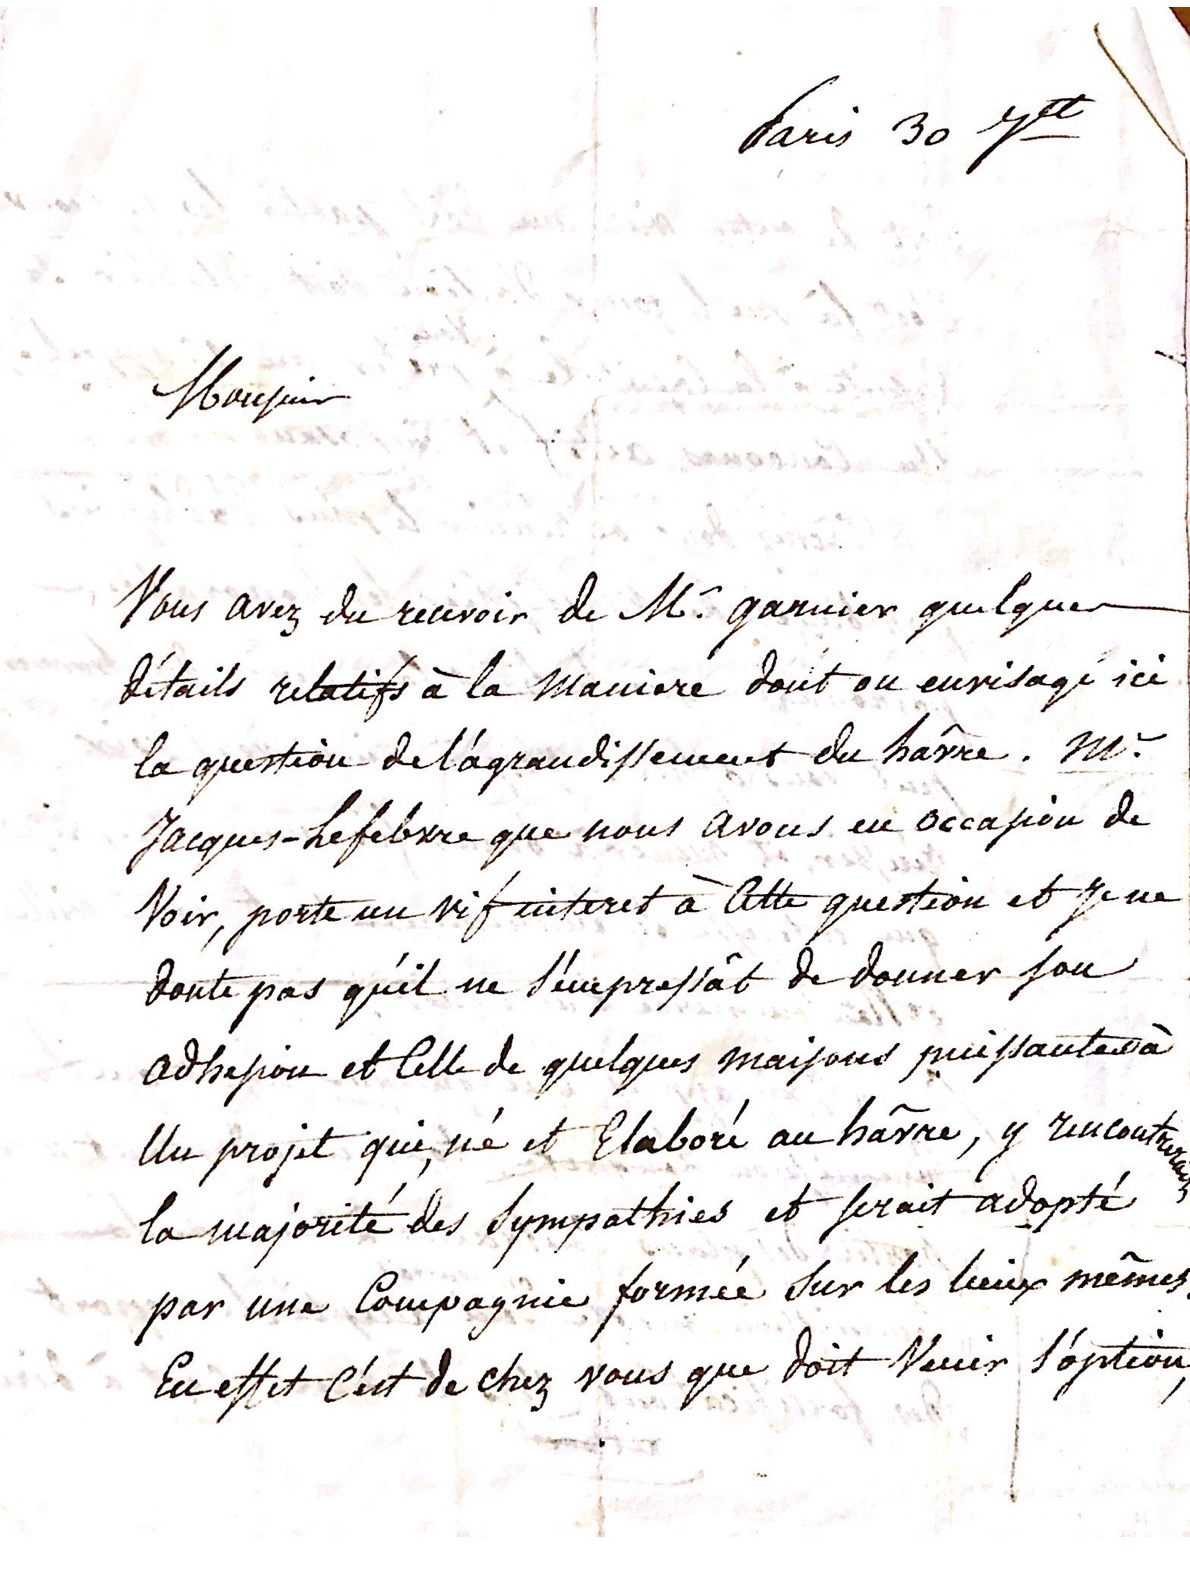 Paris 30 Jtt
Monsieur
Vous avez du recevoir de Mr. garnier quelques
détails relatifs à la maniere dont on envisage ici
la question de l'agrandissement du hâvre. Mr.
Jacques-Lefebvre que nous avons eu occasion de
Voir, porte un vif interet à Cette question et je ne
doute pas qu'il ne s'empressât de donner son
adhesion et Celle de quelques maisons puissantes à
Un projet qui, né et Elaboré au hâvre, y rencontrerait
la majorité des Sympathies et serait adopté
par une Compagnie formée sur les lieux mêmes.
En effet C'est de chez vous que doit Venir l'option,